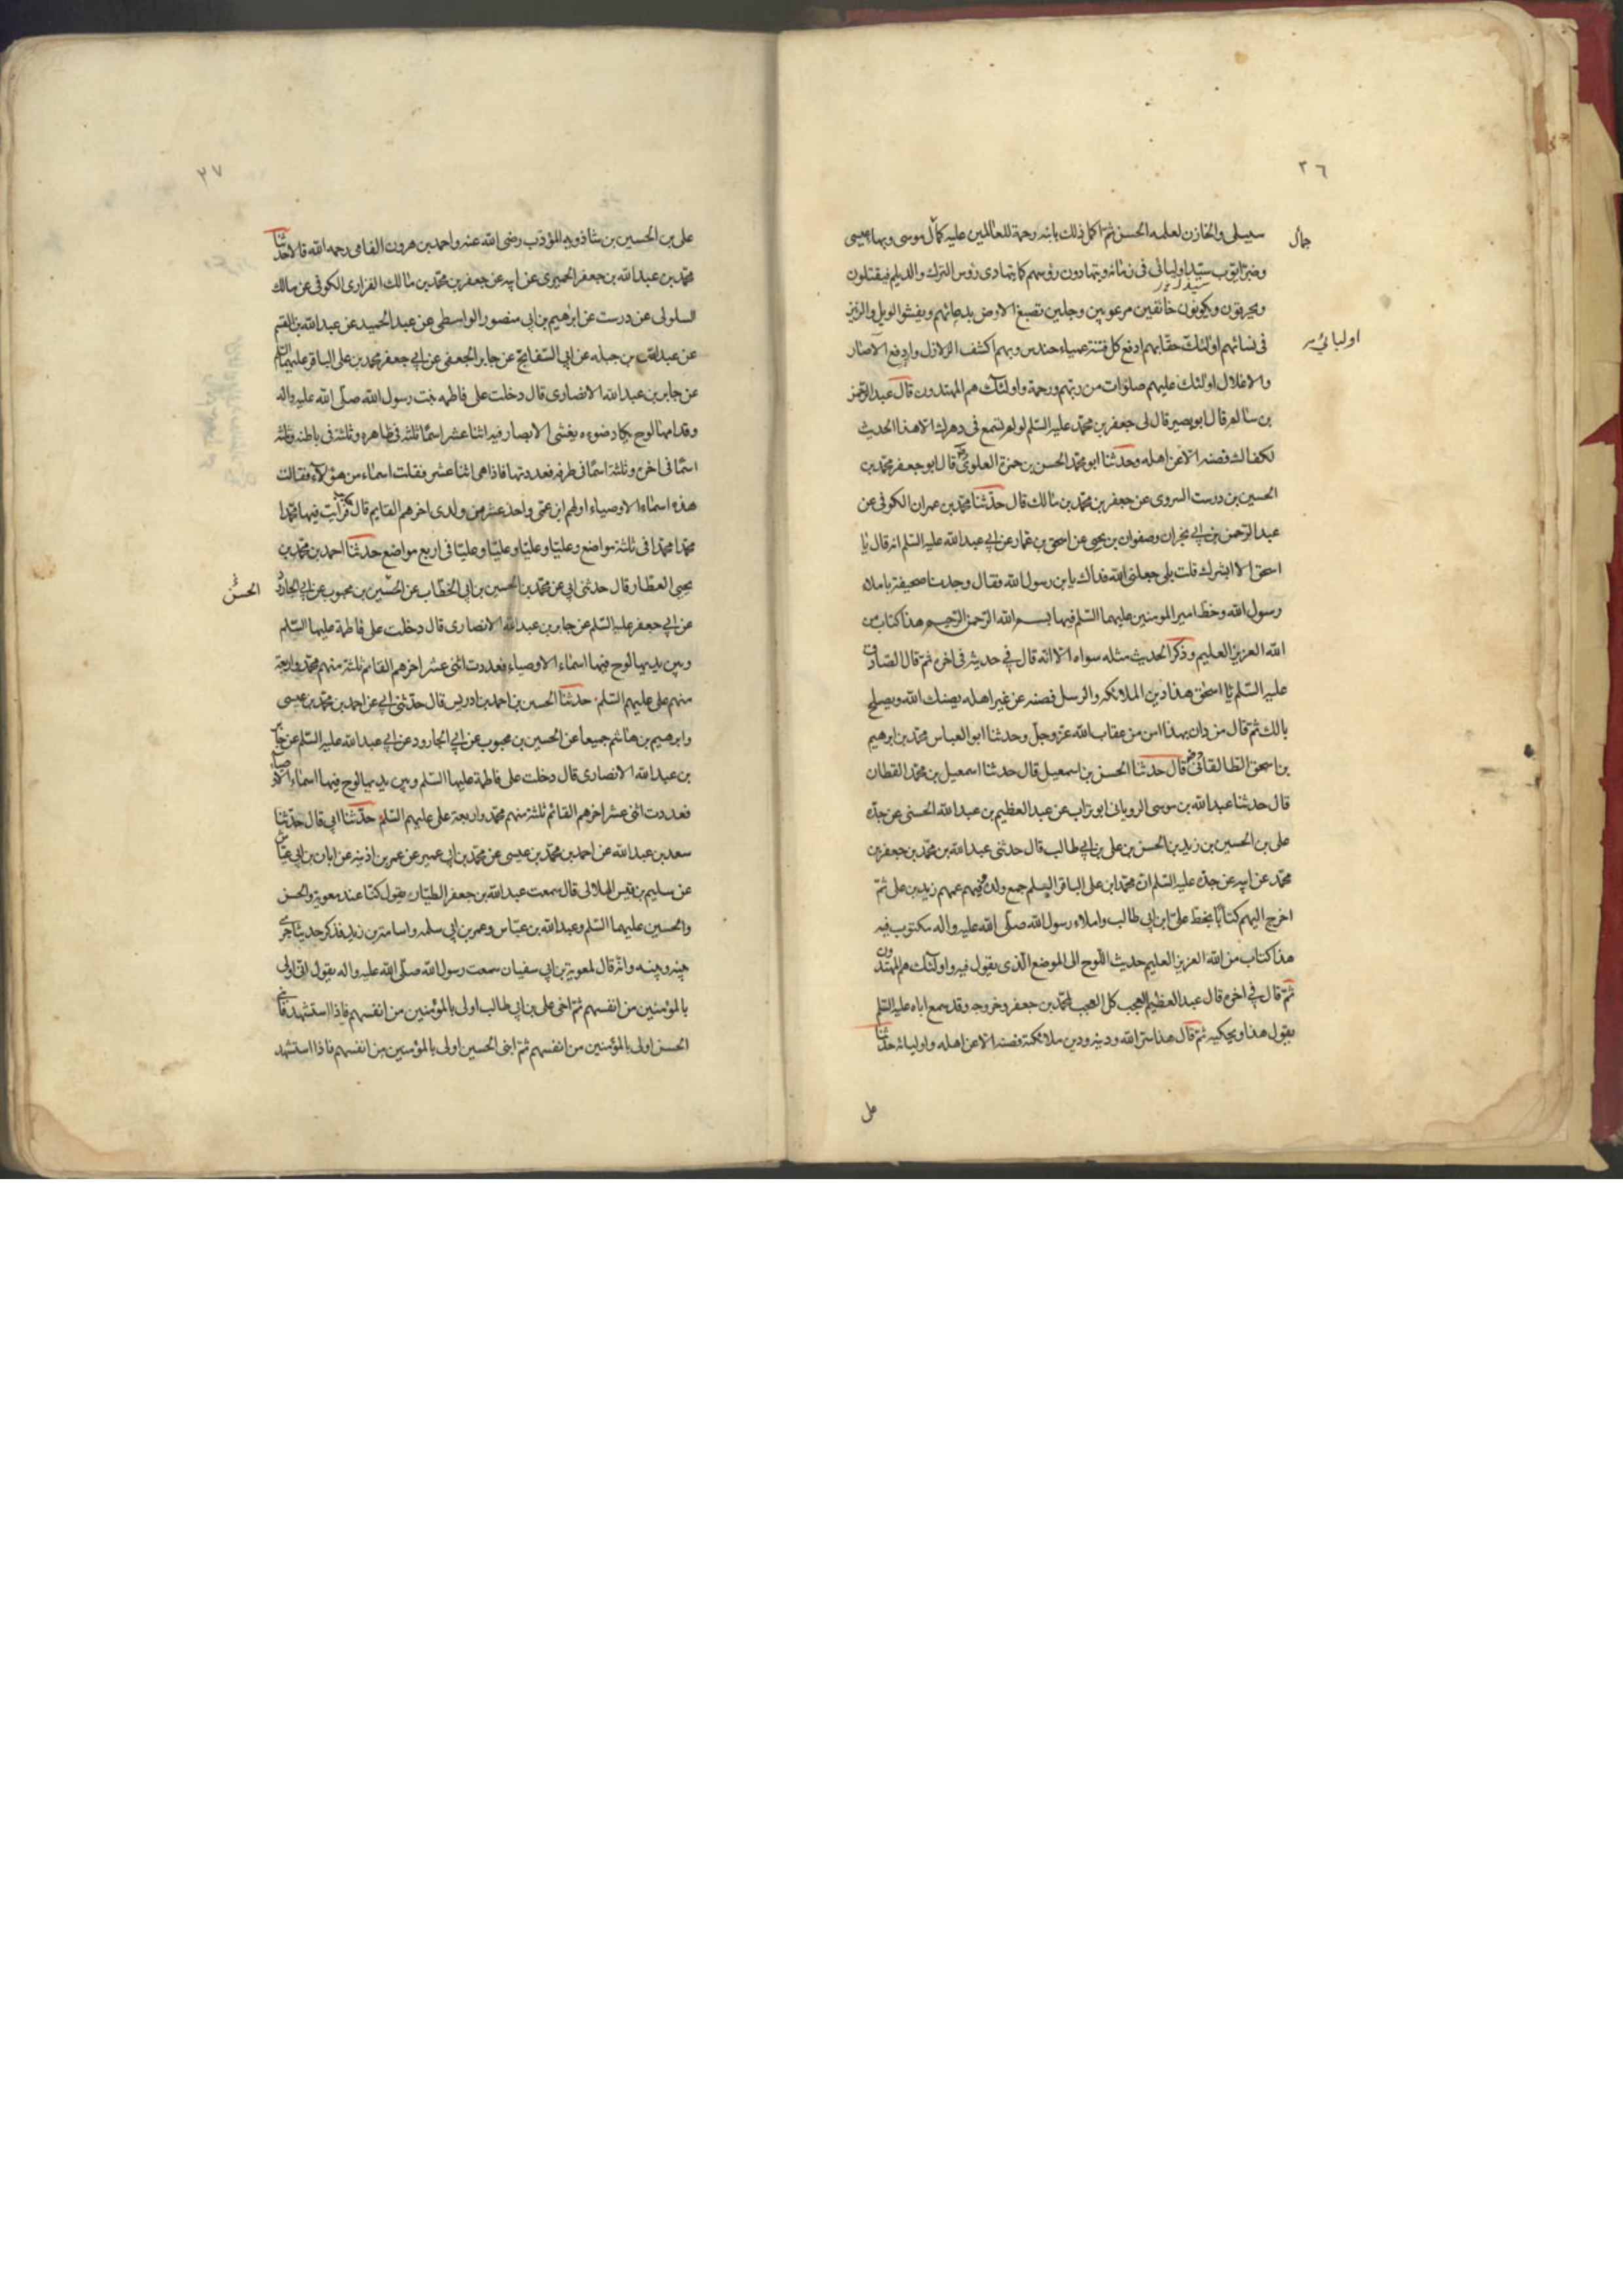 ٢٦
سبيلى والخازن لعلمه الحسن ثم اكمل ذلك بابنه رحمة للعالمين عليه كمال موسى وبهاء عيسى
جمال
وصبر ايوب سيد اوليائى فى زمانه ويتهادون رؤسهم كما يتهادى رؤس الترك والديلم فيقتلون
ويحرقون ويكونون خائفين مرعوبين وجلين تصبغ الارض بدمائهم ويفشو الويل والرنين
فى نسائهم اولئك حقا بهم ادفع كل فتنة عمياء حندس وبهم اكشف الزلازل وارفع الآصار
اوليائى
والاغلال اولئك عليهم صلوات من ربهم ورحمة واولئك هم المهتدون قال عبد الرحمن
بن سالم قال ابو بصير قال لى جعفر بن محمد عليه السلم لو لم تسمع فى دهرك الا هذا الحديث
لكفاك فصنه الا عن اهله وحدثنا ابو محمد الحسن بن حمزة العلوى قال ابو جعفر محمد بن
الحسين بن درست السروى عن جعفر بن محمد بن مالك قال حدثنا محمد بن عمران الكوفى عن
عبد الرحمن بن ابي نجران وصفوان بن يحيى عن اسحق بن عمار عن ابي عبد الله عليه السلم انه قال يا
اسحق الا ابشرك قلت بلى جعلنى الله فداك يا بن رسول الله فقال وجدنا صحيفة باملاء
رسول الله وخط امير المومنين عليهما السلم فيها بسم الله الرحمن الرحيم هذا كتاب من
الله العزيز العليم وذكر الحديث مثله سواء الا انه قال في حديثه فى اخره ثم قال الصادق
عليه السلم يا اسحق هذا دين الملائكه والرسل فصنه عن غير اهله يصنك الله ويصلح
بالك ثم قال من دان بهذا امن من عقاب الله عز وجل وحدثنا ابو العباس محمد بن ابرهيم
بن اسحق الطالقانى قال حدثنا الحسن بن اسمعيل قال حدثنا اسمعيل بن محمد القطان
قال حدثنا عبد الله بن موسى الرويانى ابو تراب عن عبد العظيم بن عبد الله الحسنى عن جده
على بن الحسين بن زيد بن الحسن بن على بن ابي طالب قال حدثنى عبد الله بن محمد بن جعفر بن
محمد عن ابيه عن جده عليه السلم ان محمد ابن على الباقر السلم جمع ولده وفيهم عمهم زيد بن على ثم
اخرج اليهم كتابا بخط على ابن ابى طالب واملاء رسول الله صلى الله عليه واله مكتوب فيه
هذا كتاب من الله العزيز العليم حديث اللوح الى الموضع الذى يقول فيه واولئك هم المهتدون
ثم قال في اخره قال عبد العظيم العجب كل العجب لمحمد بن جعفر وخروجه وقد سمع اباه عليه السلم
يقول هذا ويحكيه ثم قال هذا سر الله ودينه ودين ملائكته فصنه الا عن اهله واوليائه حدثنا
على
٢٧
على بن الحسين بن شاذويه المؤدب رضى الله عنه واحمد بن هرون الفامى رحمه الله قالا حدثنا
محمد بن عبد الله بن جعفر الحميرى عن ابيه عن جعفر بن محمد بن مالك الفزارى الكوفى عن مالك
السلولى عن درست عن ابرهيم بن ابى منصور الواسطى عن عبد الحميد عن عبد الله بن القسم
عن عبد الله بن جبله عن ابى السفاتج عن جابر الجعفى عن ابي جعفر محمد بن على الباقر عليهما السلم
عن جابر بن عبد الله الانصارى قال دخلت على فاطمه بنت رسول الله صلى الله عليه واله
وقدامها لوح يكاد ضوءه يغشى الابصار فيه اثنا عشر اسما ثلثة فى ظاهره وثلثة فى باطنه وثلثة
اسما فى اخره وثلثة اسما فى طرفه فعددتها فاذا هى اثنا عشر فقلت اسماء من هؤلاء فقالت
هذه اسماء الاوصياء اولهم ابن عمى واحد عشر من ولدى اخرهم القايم قال جابر فرأيت فيها محمدا
محمدا محمدا فى ثلثة مواضع وعليا وعليا وعليا وعليا فى اربع مواضع حدثنا احمد بن محمد بن
يحيى العطار قال حدثنى ابى عن محمد بن الحسين بن ابى الخطاب عن الحسين بن محبوب عن ابي الجارود
الحسن
عن ابي جعفر عليه السلم عن جابر بن عبد الله الانصارى قال دخلت على فاطمة عليها السلم
وبين يديها لوح فيها اسماء الاوصياء فعددت اثنى عشر اخرهم القائم ثلثة منهم محمد واربعة
منهم على عليهم السلم حدثنا الحسين بن احمد بن ادريس قال حدثنى ابي عن احمد بن محمد بن عيسى
وابرهيم بن هاشم جميعا عن الحسين بن محبوب عن ابي الجارود عن ابي عبد الله عليه السلم عن جابر
بن عبد الله الانصارى قال دخلت على فاطمة عليها السلم وبين يديها لوح فيها اسماء الاوصياء
فعددت اثنى عشر اخرهم القائم ثلثة منهم محمد واربعة على عليهم السلم حدثنا ابى قال حدثنا
سعد بن عبد الله عن احمد بن محمد بن عيسى عن محمد بن ابى عمير عن عمر بن اذينه عن ابان بن ابي عياش
عن سليم بن قيس الهلالى قال سمعت عبد الله بن جعفر الطيار يقول كنا عند معوية والحسن
والحسين عليهما السلم وعبد الله بن عباس وعمر بن ابى سلمه واسامة بن زيد فذكر حديثا جرى
بينه وبينه وانه قال لمعوية بن ابي سفيان سمعت رسول الله صلى الله عليه واله يقول انى اولى
بالمؤمنين من انفسهم ثم اخى على بن ابى طالب اولى بالمؤمنين من انفسهم فاذا استشهد فابنى
الحسن اولى بالمؤمنين من انفسهم ثم ابنى الحسين اولى بالمؤمنين من انفسهم فاذا استشهد